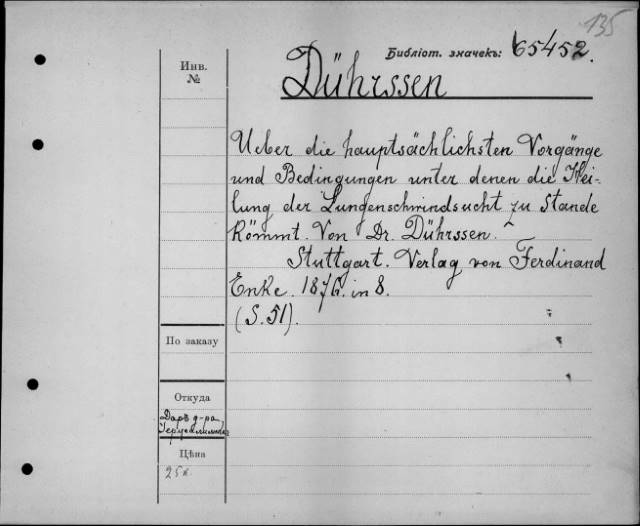 135
Библіот. значекъ: 65452.
Инв. №
Dührssen
Ueber die hauptsächlichsten Vorgänge
und Bedingungen unter denen die Hei-
lung der Lungenschwindsucht zu Stande
kömmt. Von Dr. Dührssen.
Stuttgart. Verlag von Ferdinand
Enke. 1876. in 8.
(S. 51).
По заказу
Откуда
Даръ д-ра
Цѣна
25к.